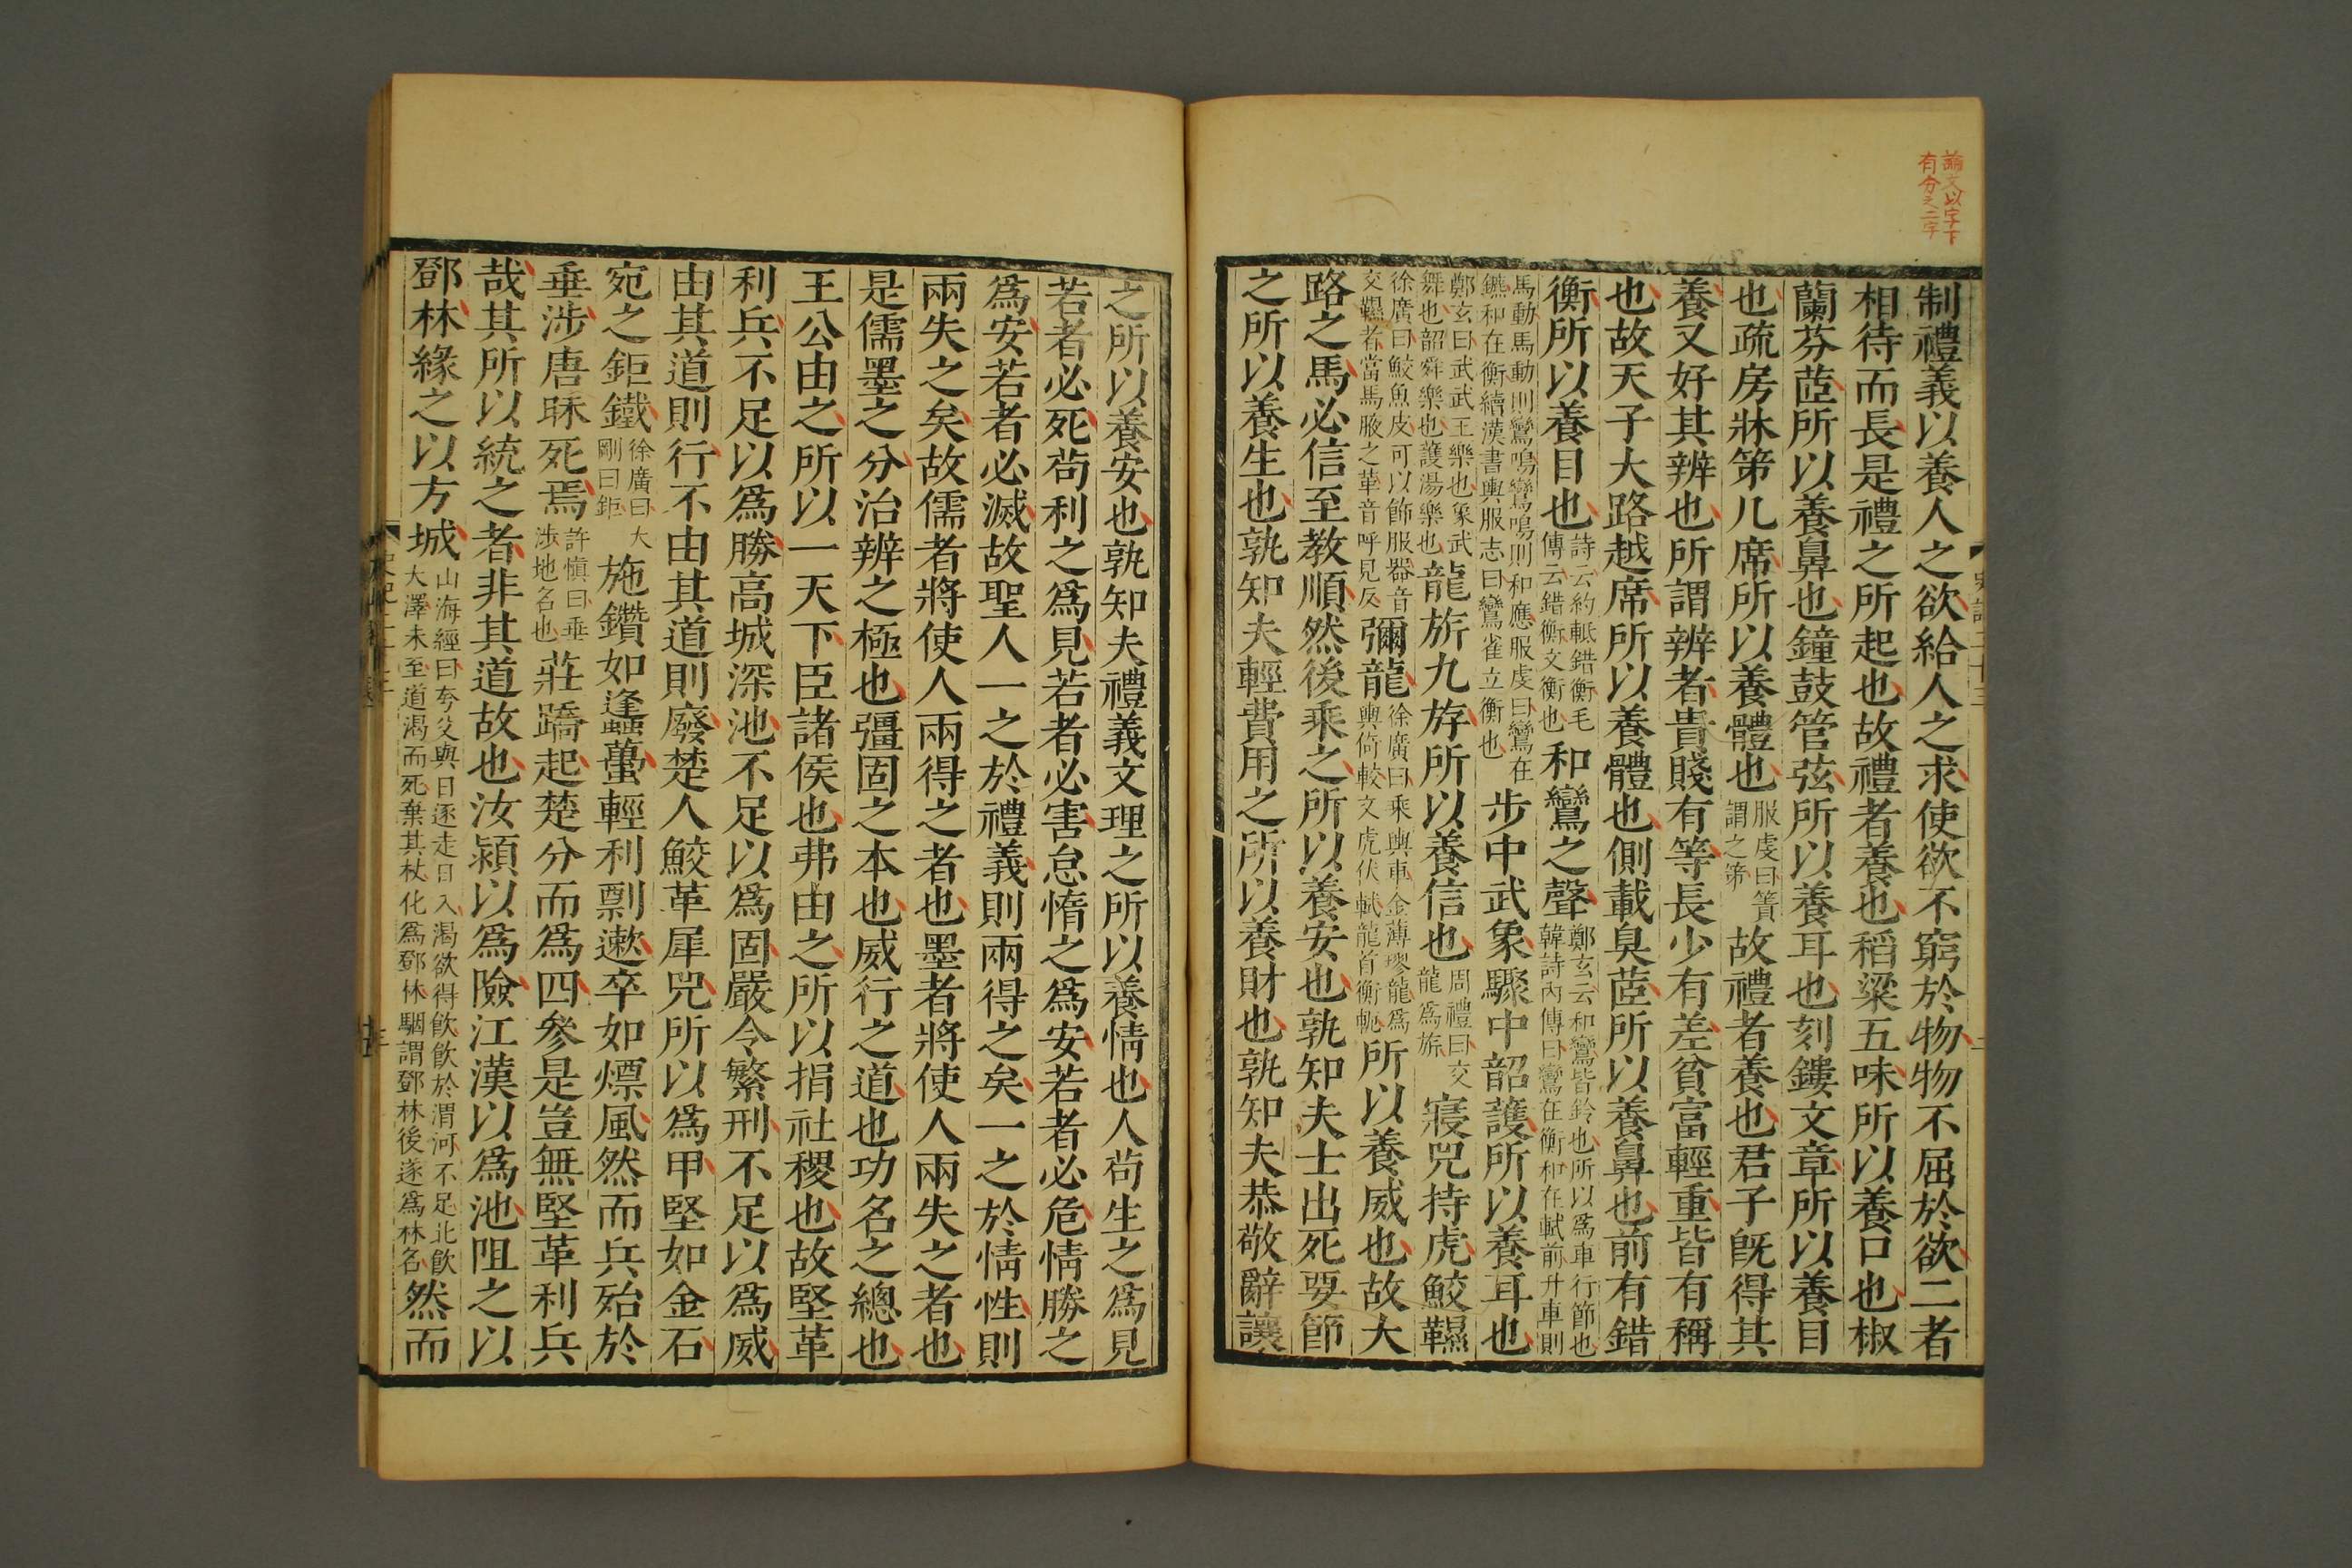 論文以字下
有分之二字
史記二十三
二
制禮義以養人之欲給人之求使欲不窮於物物不屈於欲二者
相待而長是禮之所起也故禮者養也稻粱五味所以養口也椒
蘭芬茝所以養鼻也鐘鼓管弦所以養耳也刻鏤文章所以養目
也疏房牀第几席所以養體也服虔曰簀謂之第故禮者養也君子旣得其
養又好其辨也所謂辨者貴賤有等長少有差貧富輕重皆有稱
也故天子大路越席所以養體也側載臭茝所以養鼻也前有錯
衡所以養目也詩云約軝錯衡毛傳云錯衡文衡也和鸞之聲鄭玄云和鸞皆鈴也所以爲車行節也韓詩內傳曰鸞在衡和在軾前升車則
馬動馬動則鸞鳴鸞鳴則和應服虔曰鸞在鑣和在衡續漢書輿服志曰鸞雀立衡也步中武象驟中韶護所以養耳也
鄭玄曰武武王樂也象武舞也韶舜樂也護湯樂也龍旂九斿所以養信也周禮曰交龍爲旂寢兕持虎鮫韅
徐廣曰鮫魚皮可以飾服器音交韅者當馬腋之革音呼見反彌龍徐廣曰乘輿車金薄璆龍爲輿倚較文虎伏軾龍首衡軛所以養威也故大
路之馬必信至教順然後乘之所以養安也孰知夫士出死要節
之所以養生也孰知夫輕費用之所以養財也孰知夫恭敬辭讓
之所以養安也孰知夫禮義文理之所以養情也人苟生之爲見
若者必死苟利之爲見若者必害怠惰之爲安若者必危情勝之
爲安若者必滅故聖人一之於禮義則兩得之矣一之於情性則
兩失之矣故儒者將使人兩得之者也墨者將使人兩失之者也
是儒墨之分治辨之極也彊固之本也威行之道也功名之總也
王公由之所以一天下臣諸侯也弗由之所以捐社稷也故堅革
利兵不足以爲勝高城深池不足以爲固嚴令繁刑不足以爲威
由其道則行不由其道則廢楚人鮫革犀兕所以爲甲堅如金石
宛之鉅鐵徐廣曰大剛曰鉅施鑽如蠭蠆輕利剽遫卒如熛風然而兵殆於
垂涉唐眛死焉許愼曰垂涉地名也莊蹻起楚分而爲四參是豈無堅革利兵
哉其所以統之者非其道故也汝潁以爲險江漢以爲池阻之以
鄧林緣之以方城山海經曰夸父與日逐走日入渴欲得飮飮於渭河不足北飮大澤未至道渴而死棄其杖化爲鄧林駰謂鄧林後遂爲林名然而